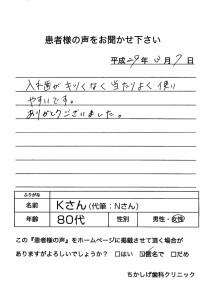 患者様の声をお聞かせ下さい
平成29年10月7日
入れ歯がキツくなく当たりよく使い
やすいです。
ありがとうございました。
ふりがな
名前 Kさん(代筆:Nさん)
年齢 80代 性別 男性・女性
この『患者様の声』をホームページに掲載させて頂く場合が
ありますがよろしいでしょうか? □はい ☑匿名で □だめ
ちかしげ歯科クリニック